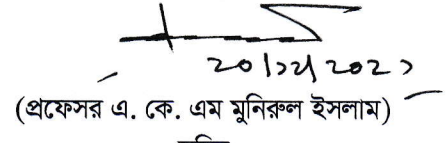 20/12/2023
(প্রফেসর এ. কে. এম মুনিরুল ইসলাম)